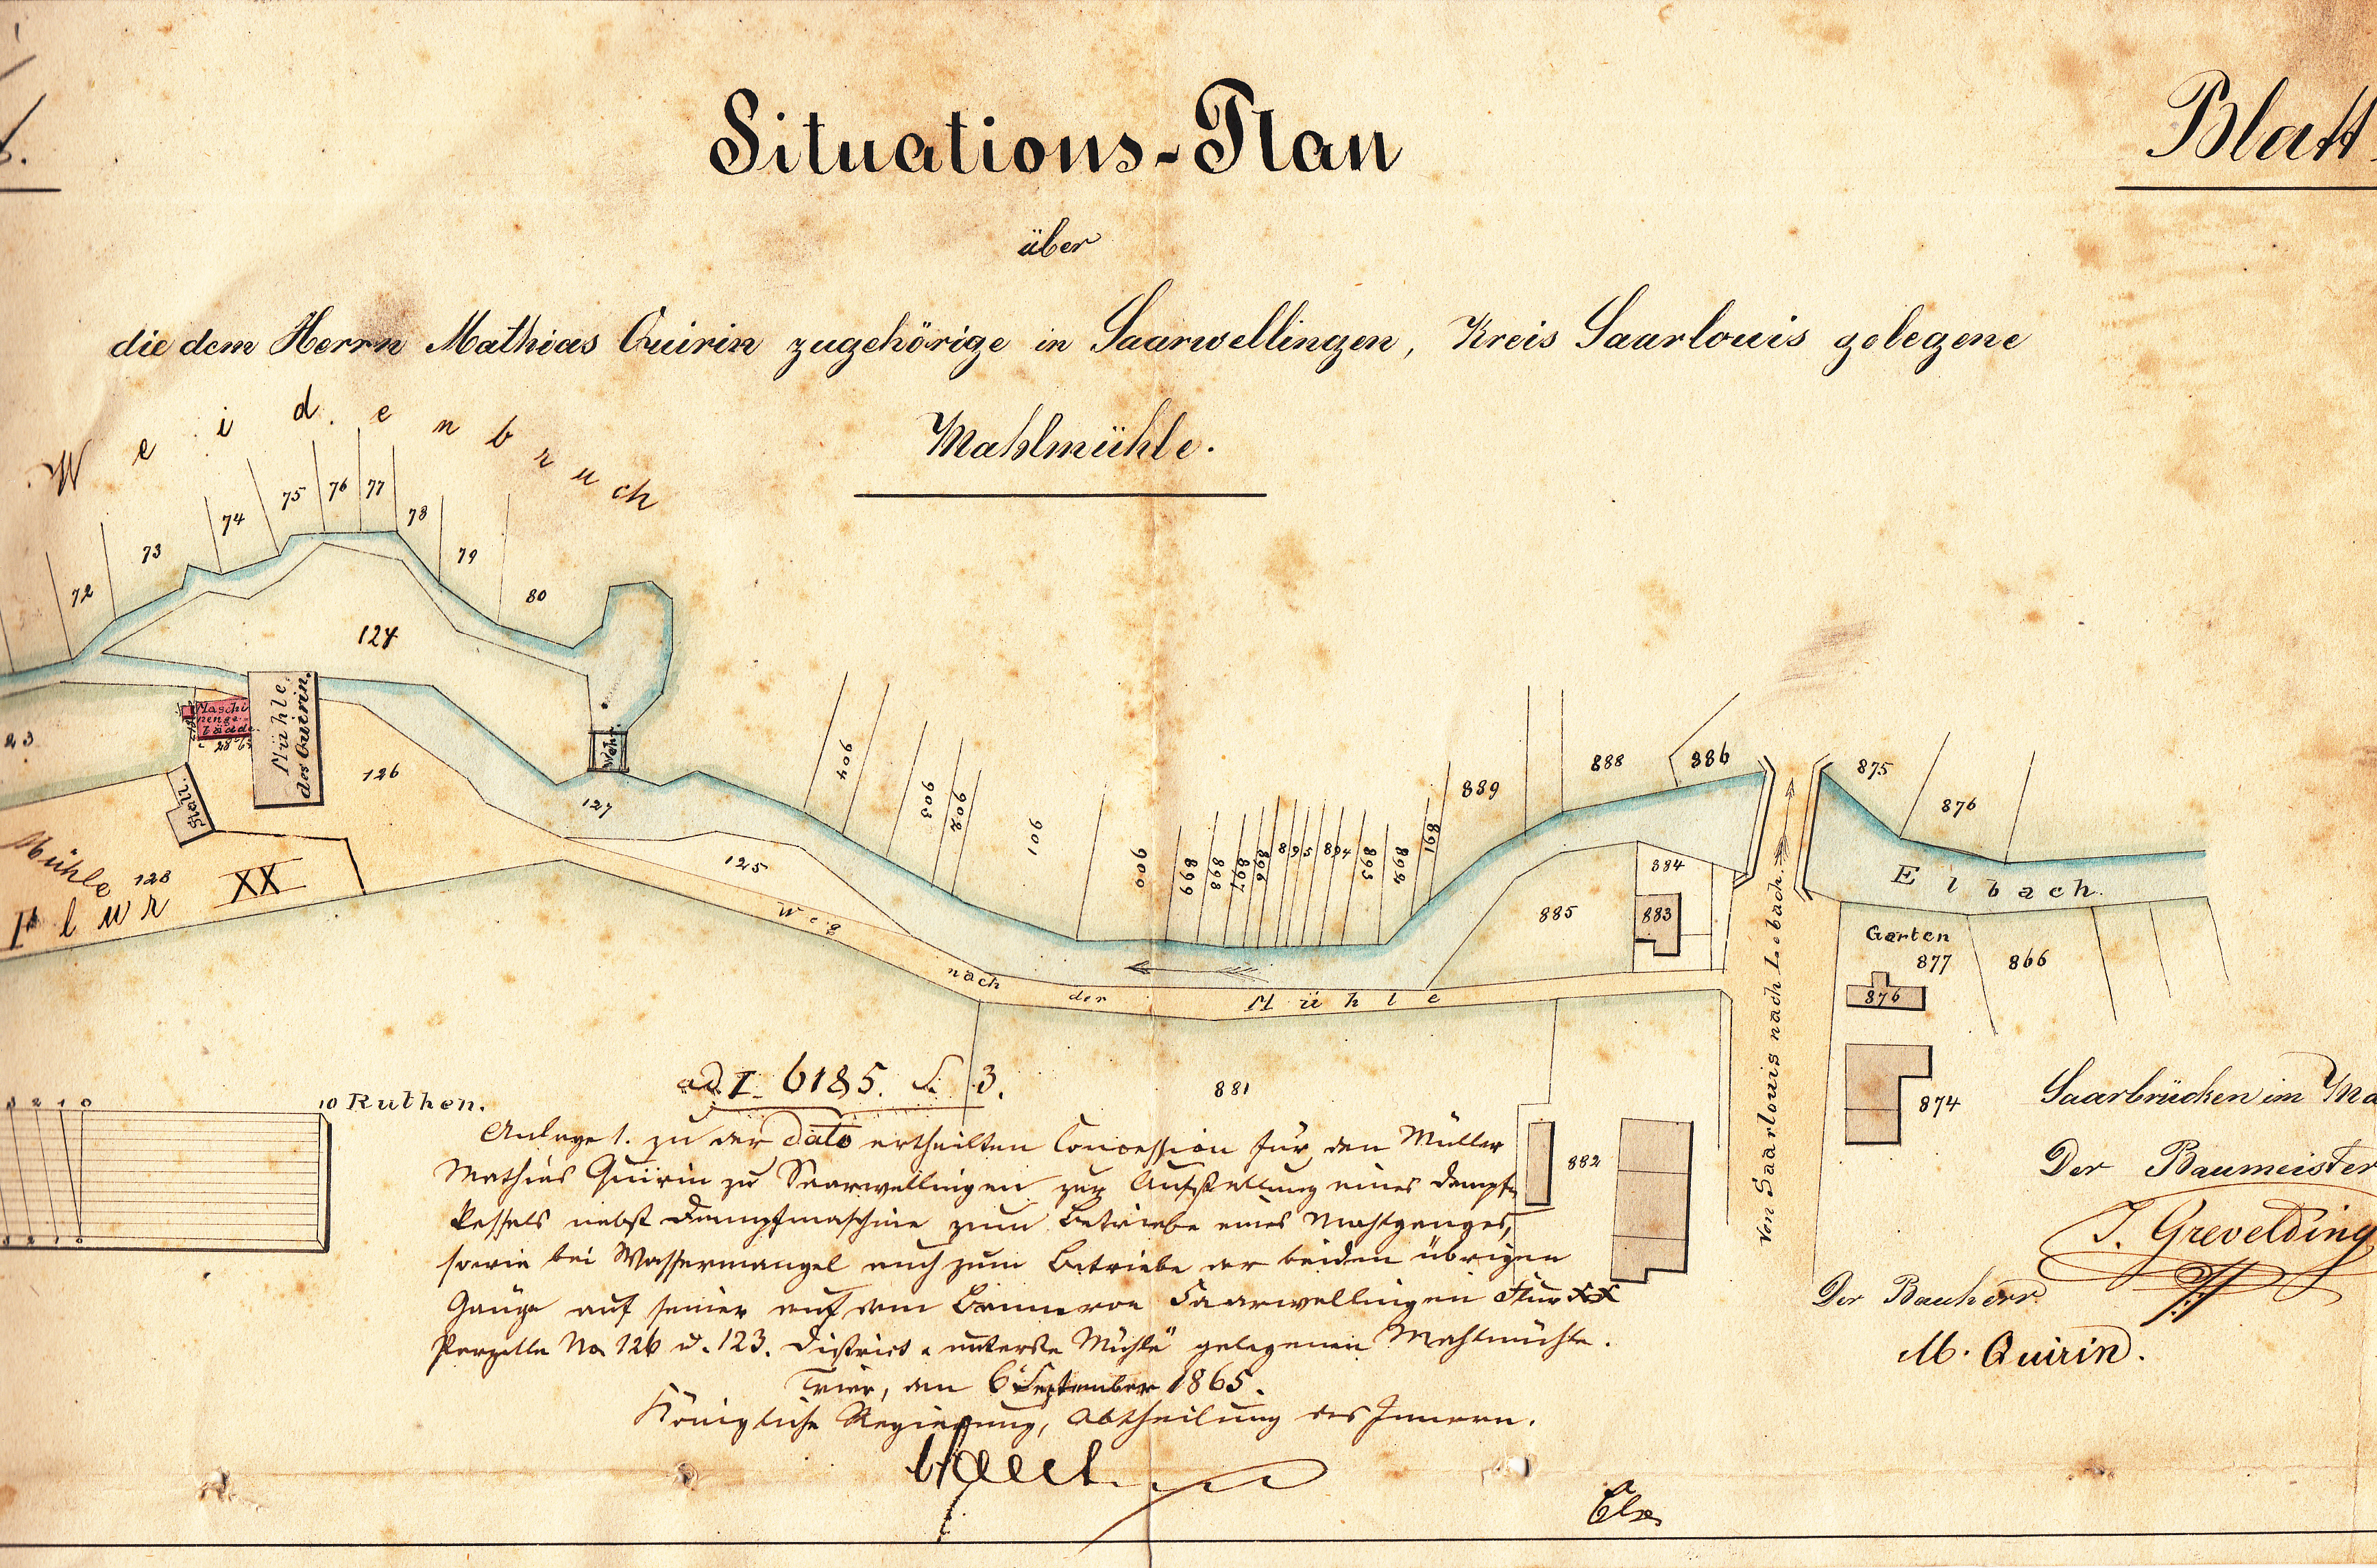 Situations-Plan
Blatt
über
die dem Herrn Mathias Quirin zugehörige in Saarwellingen, Kreis Saarlouis gelegene
Mahlmühle.
Weidenbruch
72
73
74
75
76
77
78
79
80
124
23
Maschi
nenge-
bäude
Mühle
des Quirin.
Stall.
126
Wehr.
127
125
Mühle
128
Flur XX
904
903
902
901
900
899
898
897
896
895
894
893
892
891
889
888
886
885
884
883
875
876
Elbach.
Garten
877
866
876
874
Weg nach der Mühle
Von Saarlouis nach Lebach.
881
882
3 2 1 0
10 Ruthen.
3 2 1 0
ad I. 6185. S. 3.
Anlage 1. zu der dato ertheilten Concession für den Müller
Mathias Quirin zu Saarwellingen zur Aufstellung eines Dampf-
kessels nebst Dampfmaschine zum Betriebe eines Mahlganges,
sowie bei Wassermangel auch zum Betriebe der beiden übrigen
Gänge auf seiner auf dem Banne von Saarwellingen Flur XX
Parzelle No 126 u. 123. District "unterste Mühle" gelegenen Mahlmühle.
Trier, den 6 September 1865.
Königliche Regierung, Abtheilung des Innern.
Saarbrücken im Ma
Der Baumeister
J. Grevelding
Der Bauherr.
M. Quirin.